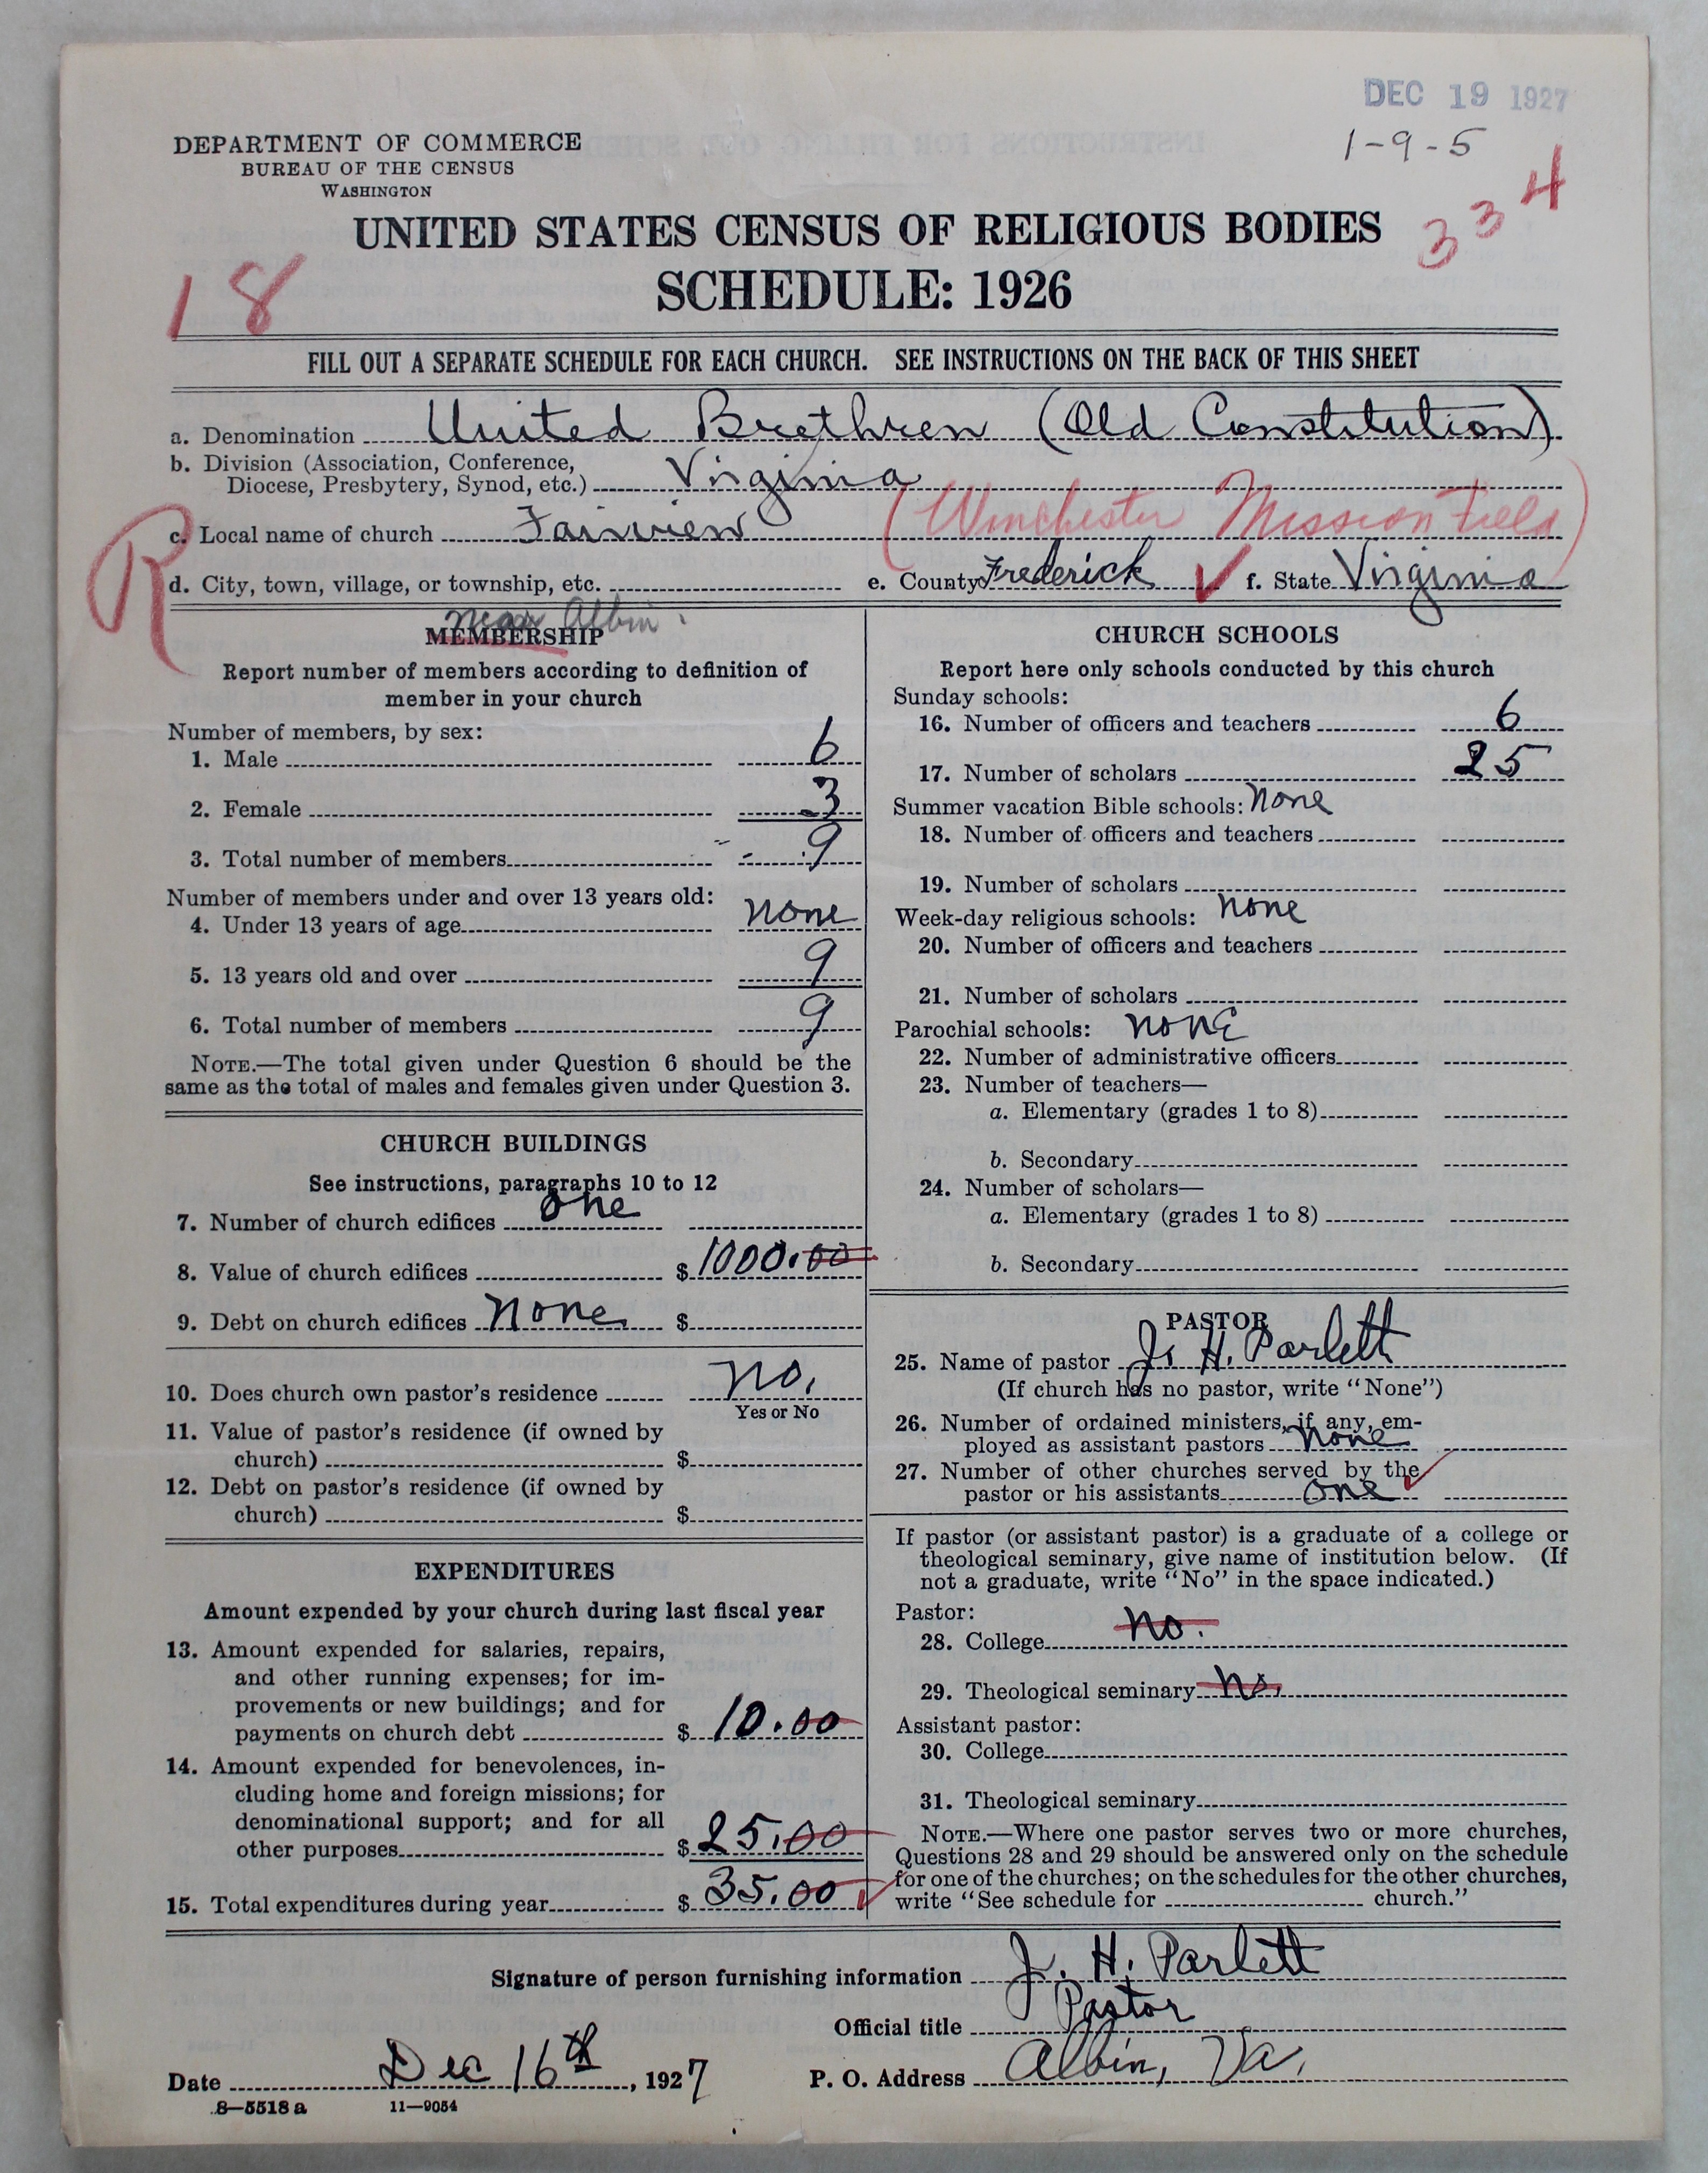 DEC 19 1927
1-9-5
DEPARTMENT OF COMMERCE
BUREAU OF THE CENSUS
WASHINGTON
334
UNITED STATES CENSUS OF RELIGIOUS BODIES
18
SCHEDULE: 1926
FILL OUT A SEPARATE SCHEDULE FOR EACH CHURCH. SEE INSTRUCTIONS ON THE BACK OF THIS SHEET
a. Denomination United Brethren (Old Constitution)
b. Division (Association, Conference,
Diocese, Presbytery, Synod, etc.) Virginia
R
c. Local name of church Fairview (Winchester Mission Field)
d. City, town, village, or township, etc. e. County Frederick f. State Virginia
near Albin.
MEMBERSHIP
Report number of members according to definition of
member in your church
Number of members, by sex:
1. Male 6
2. Female 3
3. Total number of members 9
Number of members under and over 13 years old:
4. Under 13 years of age none
5. 13 years old and over 9
6. Total number of members 9
NOTE.—The total given under Question 6 should be the
same as the total of males and females given under Question 3.
CHURCH BUILDINGS
See instructions, paragraphs 10 to 12
7. Number of church edifices one
8. Value of church edifices $ 1000.00
9. Debt on church edifices none $
10. Does church own pastor's residence no.
Yes or No
11. Value of pastor's residence (if owned by
church) $
12. Debt on pastor's residence (if owned by
church) $
EXPENDITURES
Amount expended by your church during last fiscal year
13. Amount expended for salaries, repairs,
and other running expenses; for im-
provements or new buildings; and for
payments on church debt $ 10.00
14. Amount expended for benevolences, in-
cluding home and foreign missions; for
denominational support; and for all
other purposes $ 25.00
15. Total expenditures during year $ 35.00
CHURCH SCHOOLS
Report here only schools conducted by this church
Sunday schools:
16. Number of officers and teachers 6
17. Number of scholars 25
Summer vacation Bible schools: none
18. Number of officers and teachers
19. Number of scholars
Week-day religious schools: none
20. Number of officers and teachers
21. Number of scholars
Parochial schools: none
22. Number of administrative officers
23. Number of teachers—
a. Elementary (grades 1 to 8)
b. Secondary
24. Number of scholars—
a. Elementary (grades 1 to 8)
b. Secondary
PASTOR
25. Name of pastor J. H. Parlett
(If church has no pastor, write "None")
26. Number of ordained ministers, if any, em-
ployed as assistant pastors none
27. Number of other churches served by the
pastor or his assistants one
If pastor (or assistant pastor) is a graduate of a college or
theological seminary, give name of institution below. (If
not a graduate, write "No" in the space indicated.)
Pastor:
28. College no.
29. Theological seminary no.
Assistant pastor:
30. College
31. Theological seminary
NOTE.—Where one pastor serves two or more churches,
Questions 28 and 29 should be answered only on the schedule
for one of the churches; on the schedules for the other churches,
write "See schedule for church."
Signature of person furnishing information J. H. Parlett
Official title Pastor
Date Dec 16th, 1927 P. O. Address Albin, Va.
8—5518 a 11—9054